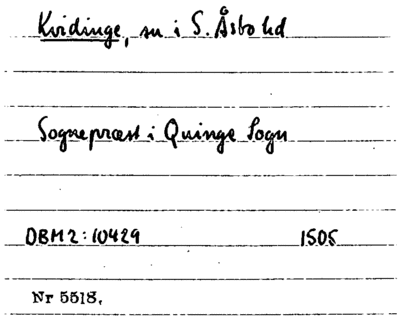 Kvidinge, sn i S. Åsbo hd
Sognepræst i Quinge Sogn
DBM2:10429 1505
Nr 5518.